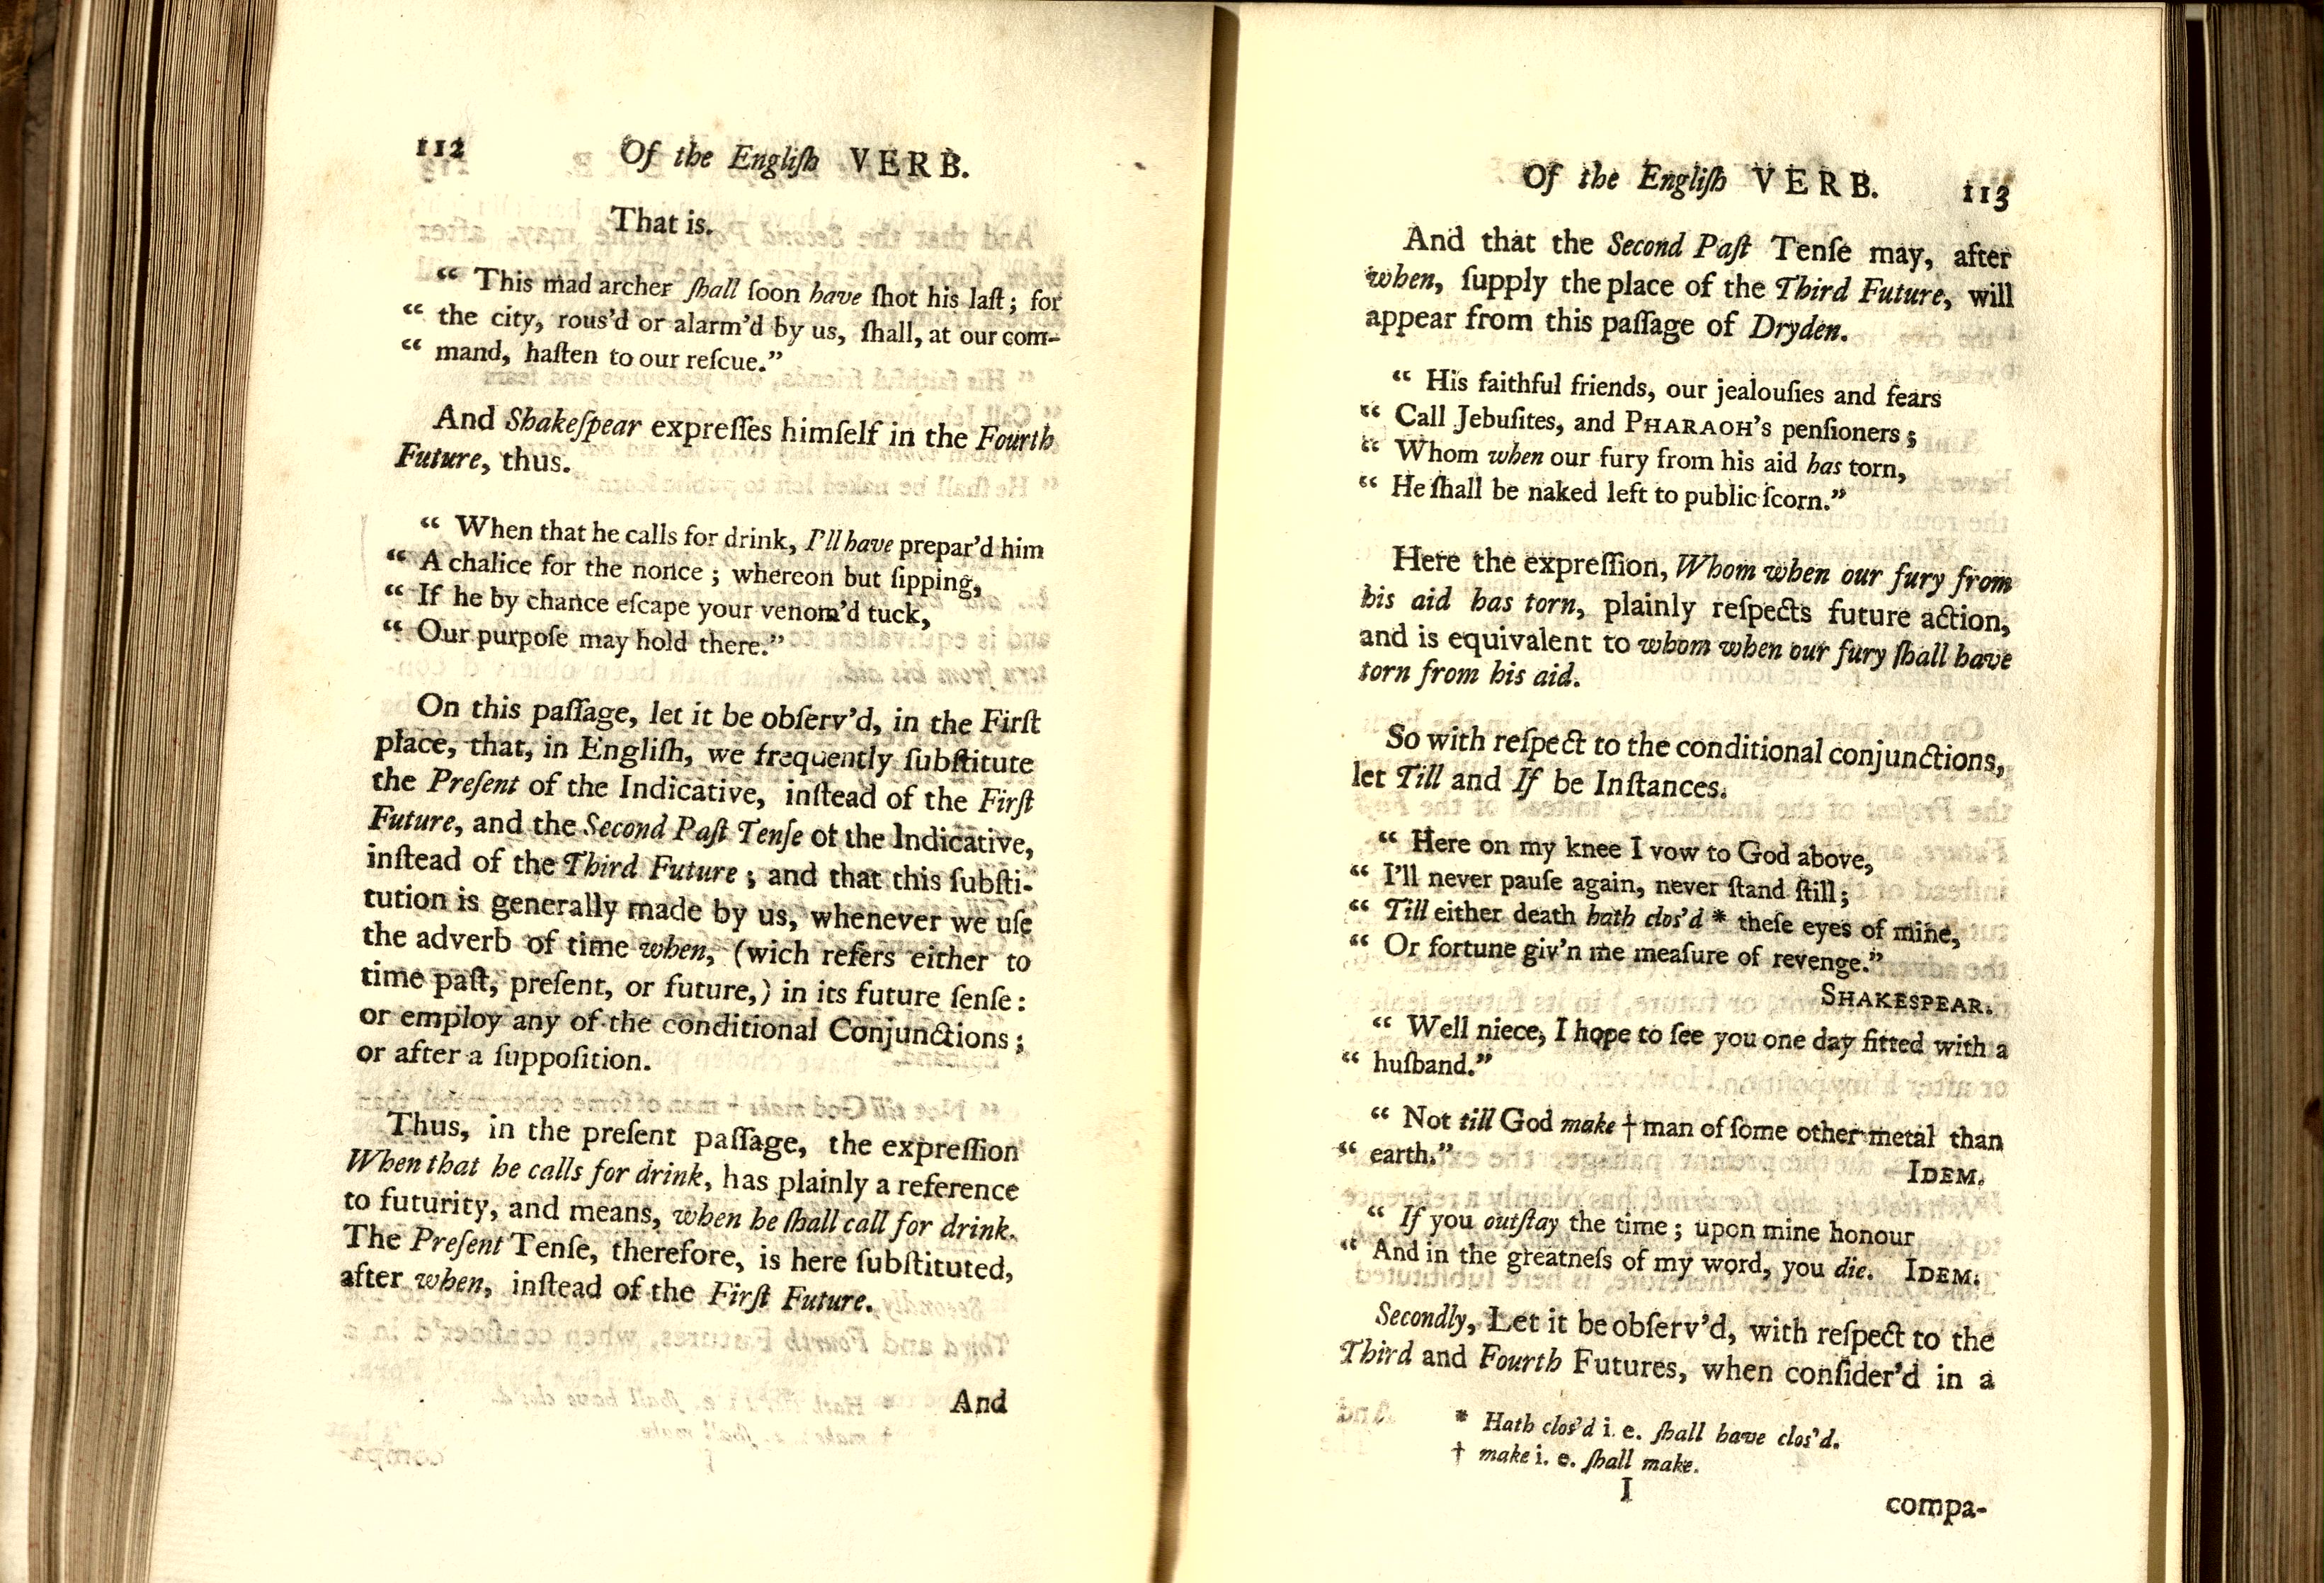 112 Of the Engliſh VERB.
That is.
“ This mad archer ſhall ſoon have ſhot his laſt; for
“ the city, rous’d or alarm’d by us, ſhall, at our com-
“ mand, haſten to our reſcue.”
And Shakeſpear expreſſes himſelf in the Fourth
Future, thus.
“ When that he calls for drink, I’ll have prepar’d him
“ A chalice for the nonce ; whereon but ſipping,
“ If he by chance eſcape your venom’d tuck,
“ Our purpoſe may hold there.”
On this paſſage, let it be obſerv’d, in the Firſt
place, that, in Engliſh, we frequently ſubſtitute
the Preſent of the Indicative, inſtead of the Firſt
Future, and the Second Paſt Tenſe of the Indicative,
inſtead of the Third Future ; and that this ſubſti-
tution is generally made by us, whenever we uſe
the adverb of time when, (wich refers either to
time paſt, preſent, or future,) in its future ſenſe :
or employ any of the conditional Conjunctions ;
or after a ſuppoſition.
Thus, in the preſent paſſage, the expreſſion
When that he calls for drink, has plainly a reference
to futurity, and means, when he ſhall call for drink.
The Preſent Tenſe, therefore, is here ſubſtituted,
after when, inſtead of the Firſt Future.
And
Of the Engliſh VERB. 113
And that the Second Paſt Tenſe may, after
when, ſupply the place of the Third Future, will
appear from this paſſage of Dryden.
“ His faithful friends, our jealouſies and fears
“ Call Jebuſites, and PHARAOH’S penſioners ;
“ Whom when our fury from his aid has torn,
“ He ſhall be naked left to public ſcorn.”
Here the expreſſion, Whom when our fury from
his aid has torn, plainly reſpects future action,
and is equivalent to whom when our fury ſhall have
torn from his aid.
So with reſpect to the conditional conjunctions,
let Till and If be Inſtances.
“ Here on my knee I vow to God above,
“ I’ll never pauſe again, never ſtand ſtill ;
“ Till either death hath clos’d * theſe eyes of mine,
“ Or fortune giv’n me meaſure of revenge.”
SHAKESPEAR.
“ Well niece, I hope to ſee you one day fitted with a
“ huſband.”
“ Not till God make † man of ſome other metal than
“ earth.”
IDEM.
“ If you outſtay the time ; upon mine honour
“ And in the greatneſs of my word, you die. IDEM.
Secondly, Let it be obſerv’d, with reſpect to the
Third and Fourth Futures, when conſider’d in a
* Hath clos’d i. e. ſhall have clos’d.
† make i. e. ſhall make.
I
compa-